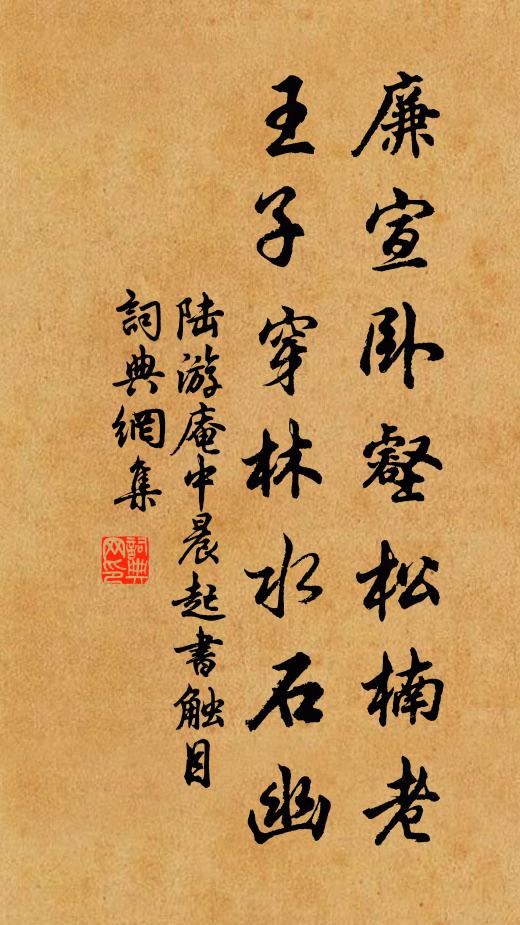 廉宣卧壑松楠老
王子穿林水石幽
陆游庵中晨起書触目
詞典網集
詞典
网印